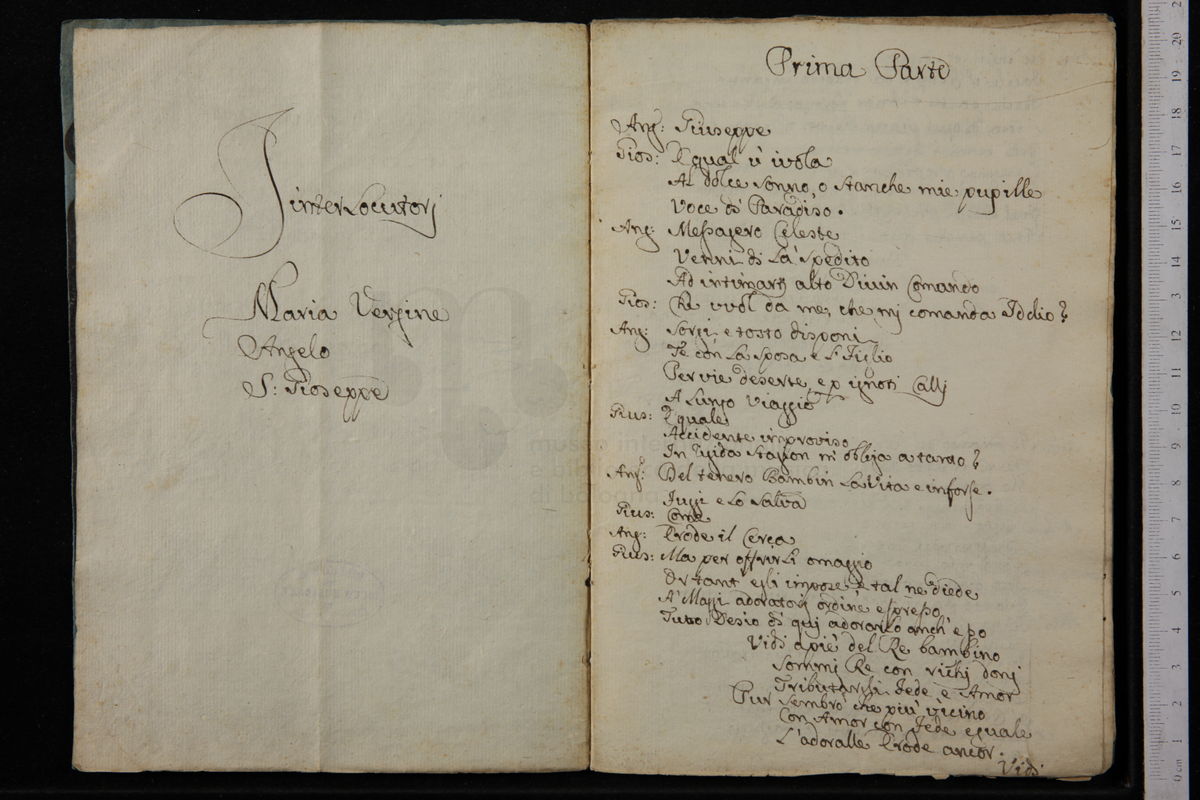 Interlocutorj
Maria Vergine
Angelo
S: Gioseppe
Prima Parte
Ang: Giuseppe
Gios: E qual v' invola
Al dolce sonno, o stanche mie pupille
Voce di Paradiso.
Ang: Messagero Celeste
Venni di là spedito
Ad intimarti alto Divin Comando
Gios: Che vuol da me, che mj comanda Iddio?
Ang: Sorgi e tosto disponi
Te con la sposa e 'l Figlio
Per vie deserte, e p ignoti Callj
A lungo viaggio
Gius: E quale
Accidente improviso
In rigida stagion m' obliga a tanto?
Ang: Del tenero Bambin la vita e in forse.
Fuggi e lo salva
Gius: Come
Ang: Erode il Cerca
Gius: Ma per offrirli omaggio
Or tant' egli impose, e tal ne diede
A' Maggi adoratorj ordine espresso
Tutto desio di quj adorarlo anch' esso
Vidi a pie' del Re bambino
Sommi Re con richj donj
Tributarsili Fede, e Amor
Pur sembrò che più vicino
Con Amor con Fede eguale
L'adorasse Erode ancor.
Vidi
museo inter
e bibliote
di bologna